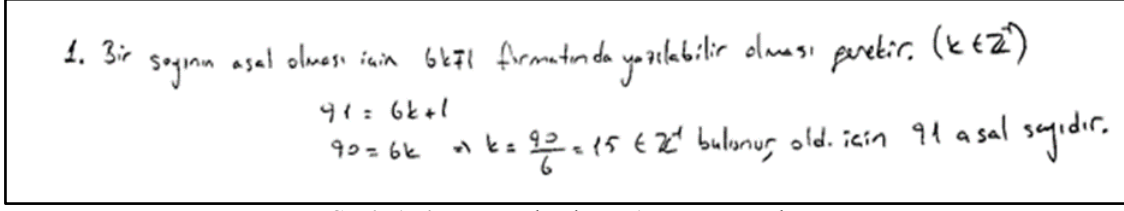 1. Bir sayının asal olması için 6k∓1 formatında yazılabilir olması gerekir. (k ∈ Z⁺)
91 = 6k+1
90 = 6k ⇒ k = 90/6 = 15 ∈ Z⁺ bulunur, old. için 91 asal sayıdır.